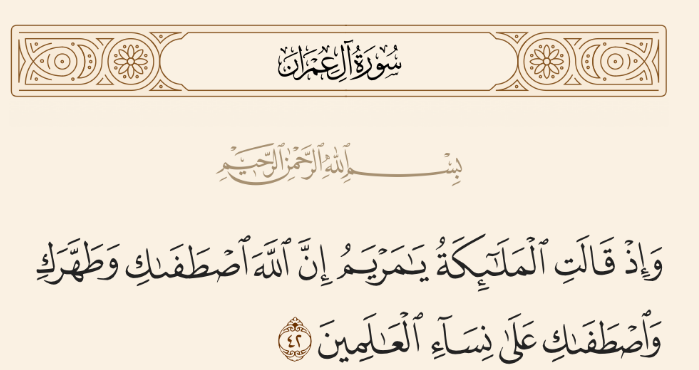 سُورَةُ آلِ عِمْرَان
بِسْمِ اللَّهِ الرَّحْمَٰنِ الرَّحِيمِ
وَإِذْ قَالَتِ ٱلْمَلَـٰٓئِكَةُ يَـٰمَرْيَمُ إِنَّ ٱللَّهَ ٱصْطَفَىٰكِ وَطَهَّرَكِ
وَٱصْطَفَىٰكِ عَلَىٰ نِسَآءِ ٱلْعَـٰلَمِينَ ٤٢